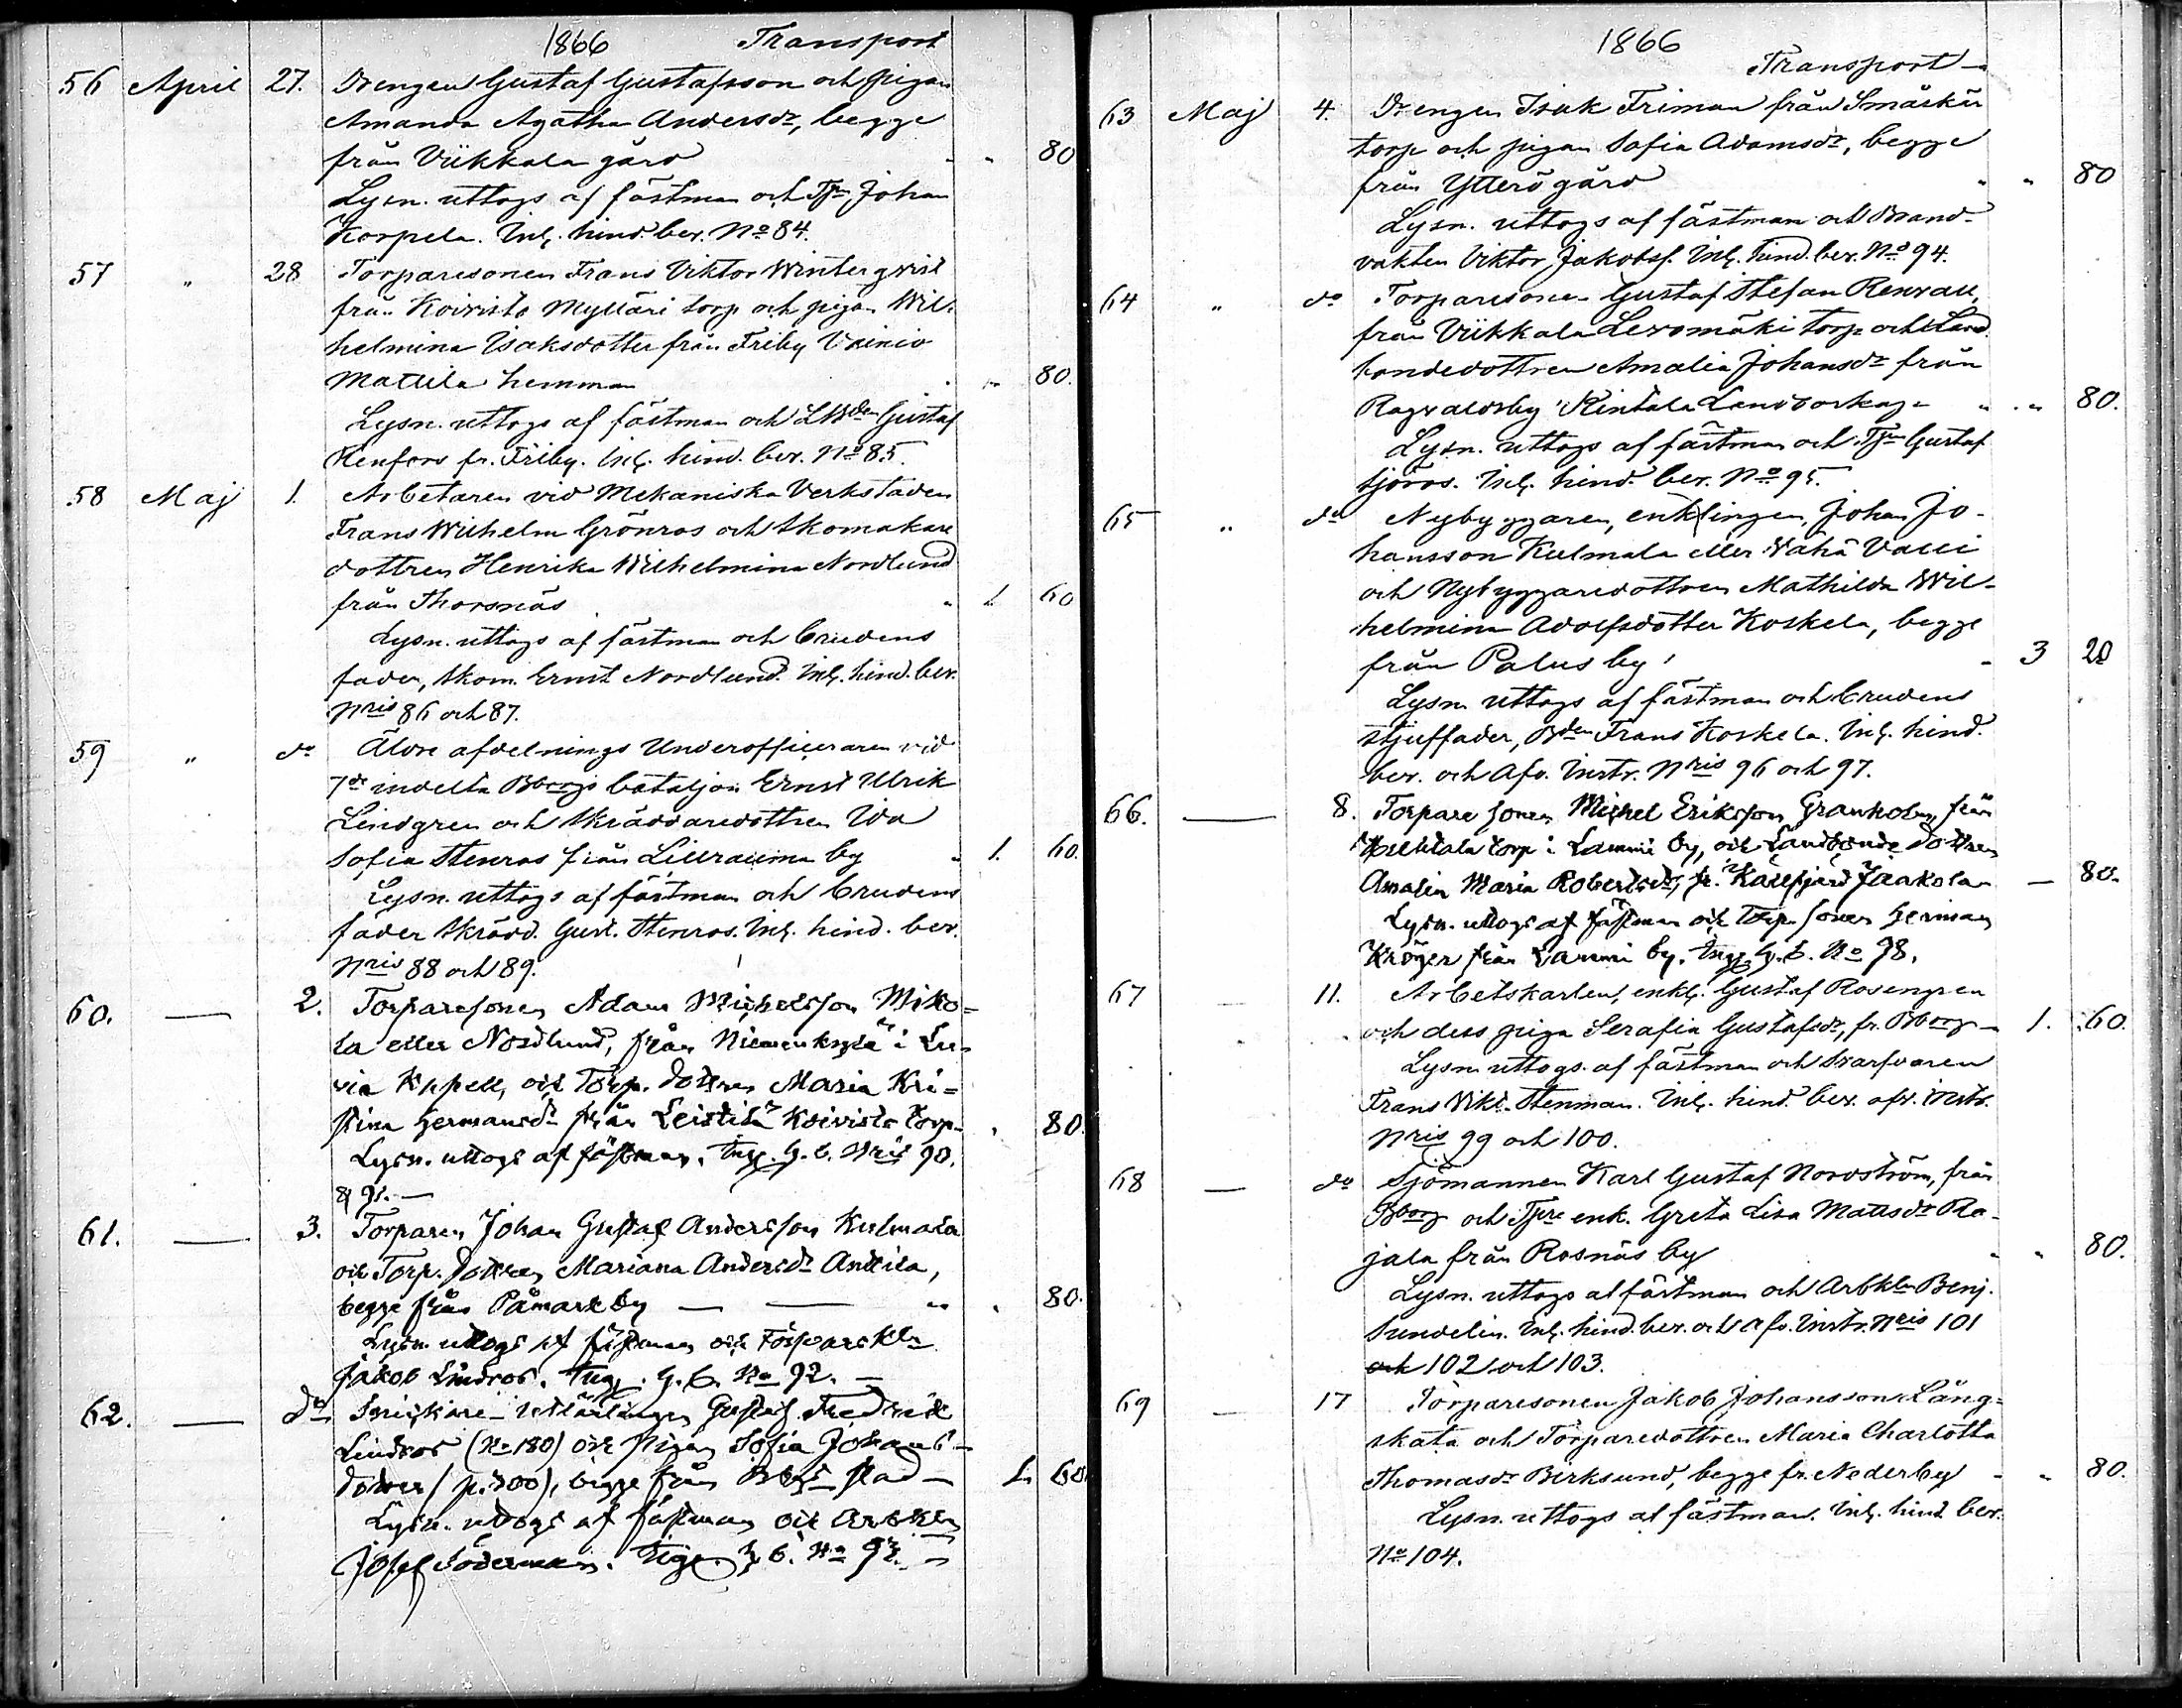 1866 Transport
56 April 27. Drengen Gustaf Gustafsson och pigan
Amanda Agatha Andersdr, begge
från Viikkala gård " " 80
Lysn. uttogs af fästman och Tjn Johan
Korpela. Inl. hind. bev. No 84.
57 " 28 Torparesonen Frans Viktor Winterqvist
från Koivisto Mylläri torp och pigan Wil-
helmina Isaksdotter från Friby Vainio
Mattila hemman " " 80.
Lysn. uttogs af fästman och LBden Gustaf
Renfors fr. Friby. Inl. hind. bev. No 85.
58 Maj 1. Arbetaren vid Mekaniska Verkstaden
Frans Wilhelm Grönros och Skomakare
dottren Henrika Wilhelmina Nordlund
från Thorsnäs " 1. 60
Lysn. uttogs af fästman och brudens
fader, Skom. Ernst Nordlund. Inl. hind. bev.
Nris 86 och 87.
59 " do Äldre afdelnings Underofficeraren vid
7de indelta Bborgs bataljon Ernst Ulrik
Lindgren och Skräddaredottren Ida
Sofia Stenros från Lillrauma by " 1. 60.
Lysn. uttogs af fästman och brudens
fader Skrädd. Gust. Stenros. Inl. hind. bev.
Nris 88 och 89.
60. — 2. Torparesonen Adam Michelsson Miko=
la eller Nordlund, från Niemenkylä i Lu-
via Kapell, och Torp. dottren Maria Kri=
stina Hermansdr från Leistilä Koivisto torp. " 80.
Lysn. uttogs af fästman. Ing. h. b. Nris 90.
& 91. —
61. — 3. Torparen Johan Gustaf Andersson Kulmala
och Torp. dottren Mariana Andersdr Anttila,
begge från Påmark by — — " . 80.
Lysn. uttogs af fästman och Torparekln
Jakob Lindros. Ing. h. b. No 92. —
62. — do Snickare- Gustaf Fredrik
Lindros (No 180) och pigan Sofia Johans-
dotter (p. 300), begge från Bborgs stad — 1. 60.
Lysn. uttogs af fästman och Arbkln
Josef Söderman. Inge. h. b. No 93. —
1866
Transport —
63 Maj 4. Drengen Isak Friman från Småskär
torp och pigan Sofia Adamsdr, begge
från Ytterö gård " " 80
Lysn. uttogs af fästman och Brand-
vakten Viktor Jakobss. Inl. hind. bev. No 94.
64 " do Torparesonen Gustaf Stefan Renvall,
från Viikkala Levomäki torp och Land
bondedottren Amalia Johansdr från
Ragvaldsby Kintala Landborlag - " " 80.
Lysn. uttogs af fästman och Tjn Gustaf
Sjöros. Inl. hind. bev. No 95.
65 " do Nybyggaren, enklingen, Johan Jo-
hansson Kulmala eller Vähä Valli
och Nybyggaredottren Mathilda Wil-
helmina Adolfsdotter Koskela, begge
från Palus by - 3 20
Lysn. uttogs af fästman och brudens
stjuffader, Bden Frans Koskela. Inl. hind.
bev. och Afv. Instr. Nris 96 och 97.
66. — 8. Torparesonen Michel Eriksson Granholm, från
torp i Lammi by, och Landbonde dottren
Amalia Maria Robertsdr, fr. Kallfjärd Jaakola — 80.
Lysn. uttogs af fästman och Torp. sonen Herman
Kröger från Lammi by. Ing. h. b. No 98.
67 — 11. Arbetskarlen, enkl. Gustaf Rosengren
och dess piga Serafia Gustafsdr, fr. Bborg — 1. 60.
Lysn. uttogs af fästman och Svarfvaren
Frans Vikt. Stenman. Inl. hind. bev. afv. instr.
Nris 99 och 100.
68 — do Sjömannen Karl Gustaf Nordström, från
Bborg och Tjre enk. Greta Lisa Mattsdr Ra-
jala från Rosnäs by " " 80.
Lysn. uttogs af fästman och Arbkln Benj.
Sundelin. Inl. hind. bev. och afv. Instr. Nris 101
och 102 och 103.
69 — 17 Torparesonen Jakob Johansson Lång=
skata och Torparedottren Maria Charlotta
Thomasdr Birksund, begge fr. Nederby - " 80.
Lysn. uttogs af fästman. Inl. hind. bev.
No 104.